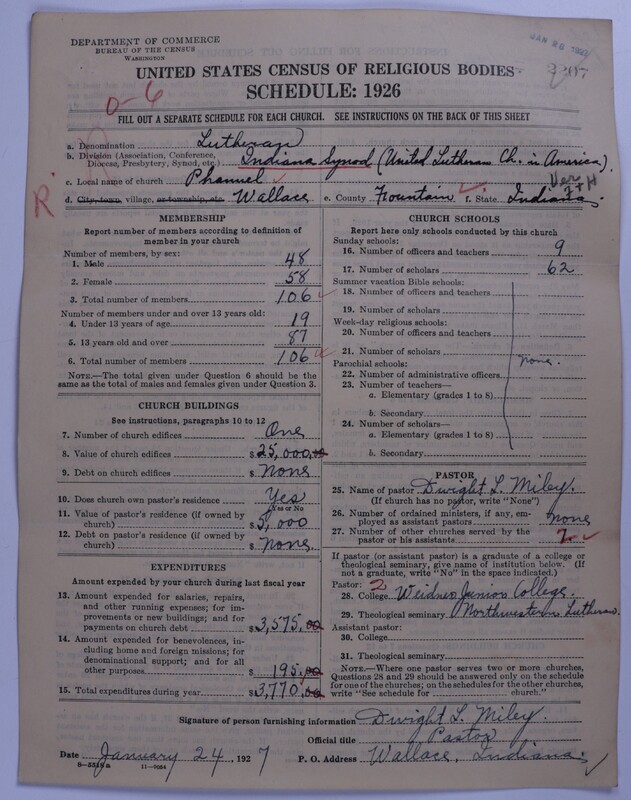 DEPARTMENT OF COMMERCE
BUREAU OF THE CENSUS
WASHINGTON
JAN 28 1927
UNITED STATES CENSUS OF RELIGIOUS BODIES
SCHEDULE: 1926
0-6
FILL OUT A SEPARATE SCHEDULE FOR EACH CHURCH. SEE INSTRUCTIONS ON THE BACK OF THIS SHEET
a. Denomination Lutheran
b. Division (Association, Conference, Diocese, Presbytery, Synod, etc.) Indiana Synod (United Lutheran Ch. in America).
c. Local name of church Phanuel
R.
d. City, town, village, or township, etc. Wallace e. County Fountain f. State Indiana.
MEMBERSHIP
Report number of members according to definition of
member in your church
Number of members, by sex:
1. Male 48
2. Female 58
3. Total number of members 106
Number of members under and over 13 years old:
4. Under 13 years of age 19
5. 13 years old and over 87
6. Total number of members 106
NOTE.—The total given under Question 6 should be
the same as the total of males and females given under Question 3.
CHURCH BUILDINGS
See instructions, paragraphs 10 to 12
7. Number of church edifices One
8. Value of church edifices $25,000.00
9. Debt on church edifices $None
10. Does church own pastor's residence Yes
Yes or No
11. Value of pastor's residence (if owned by
church) $5,000
12. Debt on pastor's residence (if owned by
church) $None.
EXPENDITURES
Amount expended by your church during last fiscal year
13. Amount expended for salaries, repairs,
and other running expenses; for im-
provements or new building; and for
payments on church debt $3,575.00
14. Amount expended for benevolences, in-
cluding home and foreign missions; for
denominational support; and for all
other purposes $195.00
15. Total expenditures during year $3,770.00
CHURCH SCHOOLS
Report here only schools conducted by this church
Sunday schools:
16. Number of officers and teachers 9
17. Number of scholars 62
Summer vacation Bible schools:
18. Number of officers and teachers
19. Number of scholars
Week-day religious schools:
20. Number of officers and teachers
21. Number of scholars
none.
Parochial schools:
22. Number of administrative officers
23. Number of teachers—
a. Elementary (grades 1 to 8)
b. Secondary
24. Number of scholars—
a. Elementary (grades 1 to 8)
b. Secondary
PASTOR
25. Name of pastor Dwight L. Miley.
(If church has no pastor, write "None")
26. Number of ordained ministers, if any, em-
ployed as assistant pastors none
27. Number of other churches served by the
pastor or his assistants 2
If pastor (or assistant pastor) is a graduate of a college or
theological seminary, give name of institution below. (If
not a graduate, write "No" in the space indicated.)
Pastor: 2
28. College Weidner Junior College.
29. Theological seminary Northwestern Lutheran.
Assistant pastor:
30. College
31. Theological seminary
NOTE.—Where one pastor serves two or more churches,
Questions 28 and 29 should be answered only on the schedule
for one of the churches; on the schedules for the other churches,
write "See schedule for church."
Signature of person furnishing information Dwight L. Miley.
Official title Pastor
Date January 24, 1927 P. O. Address Wallace, Indiana.
8-5518a 11-9034